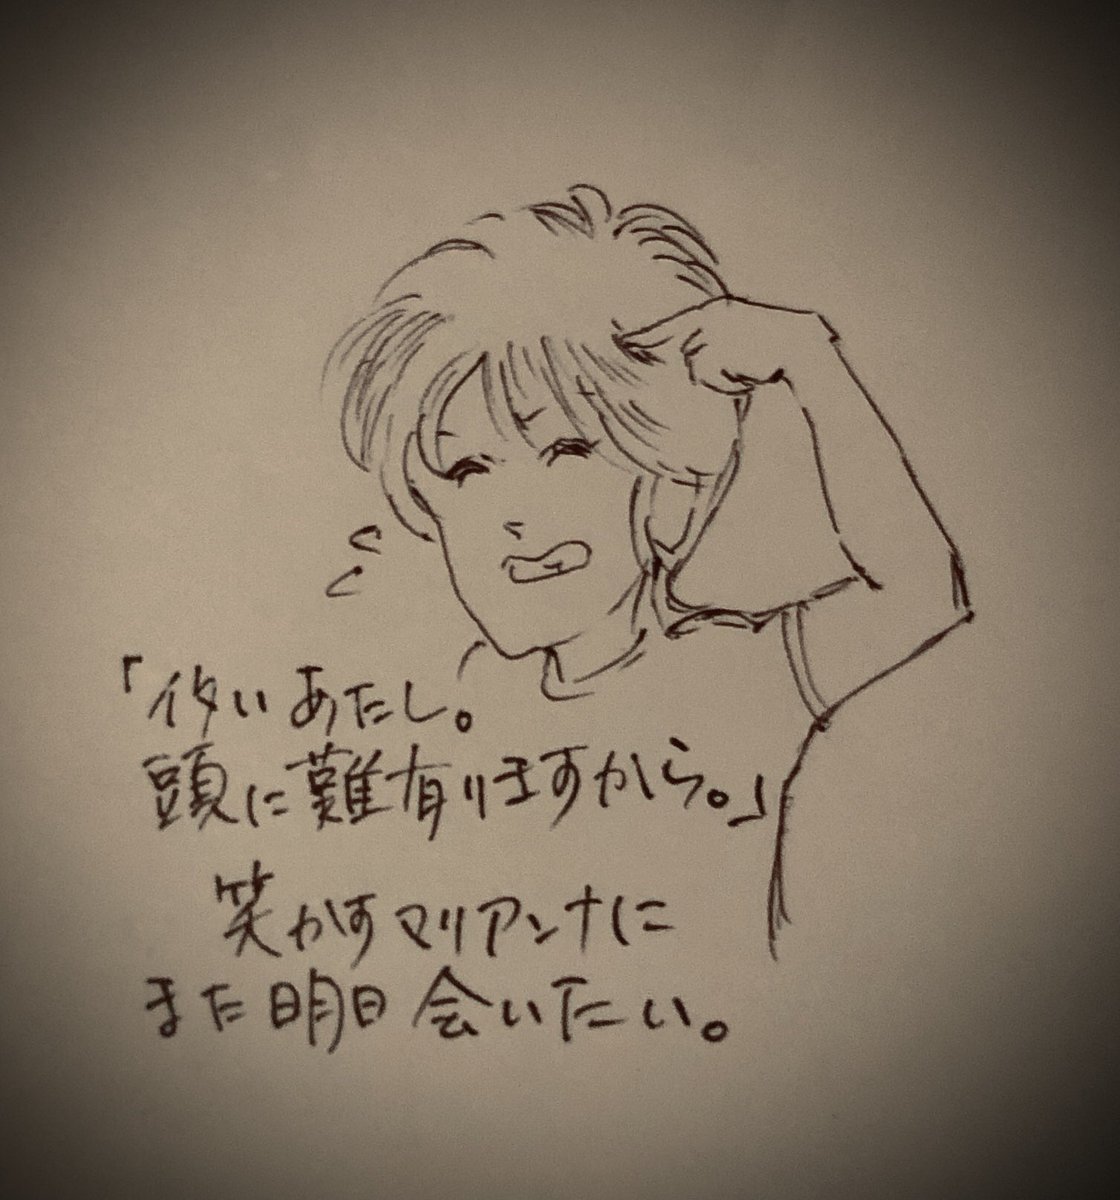 「イタいあたし。
頭に難有りますから。」
笑かすマリアンナに
また明日会いたい。